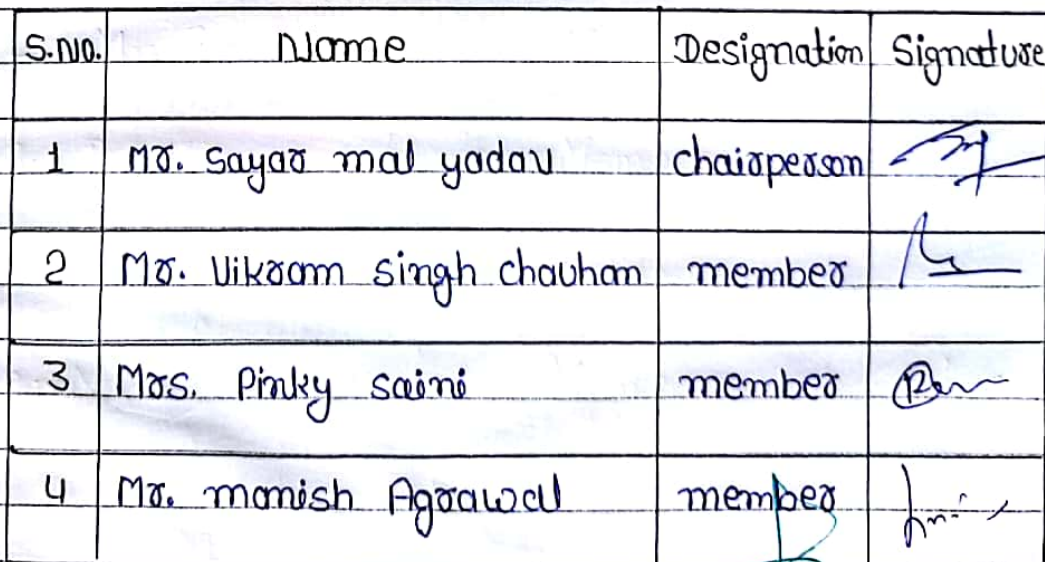 S.No. Name Designation Signature
1 Mr. Sayar mal yadav chairperson
2 Mr. Vikram singh chauhan member
3 Mrs. Pinky saini member
4 Mr. manish Agrawal member